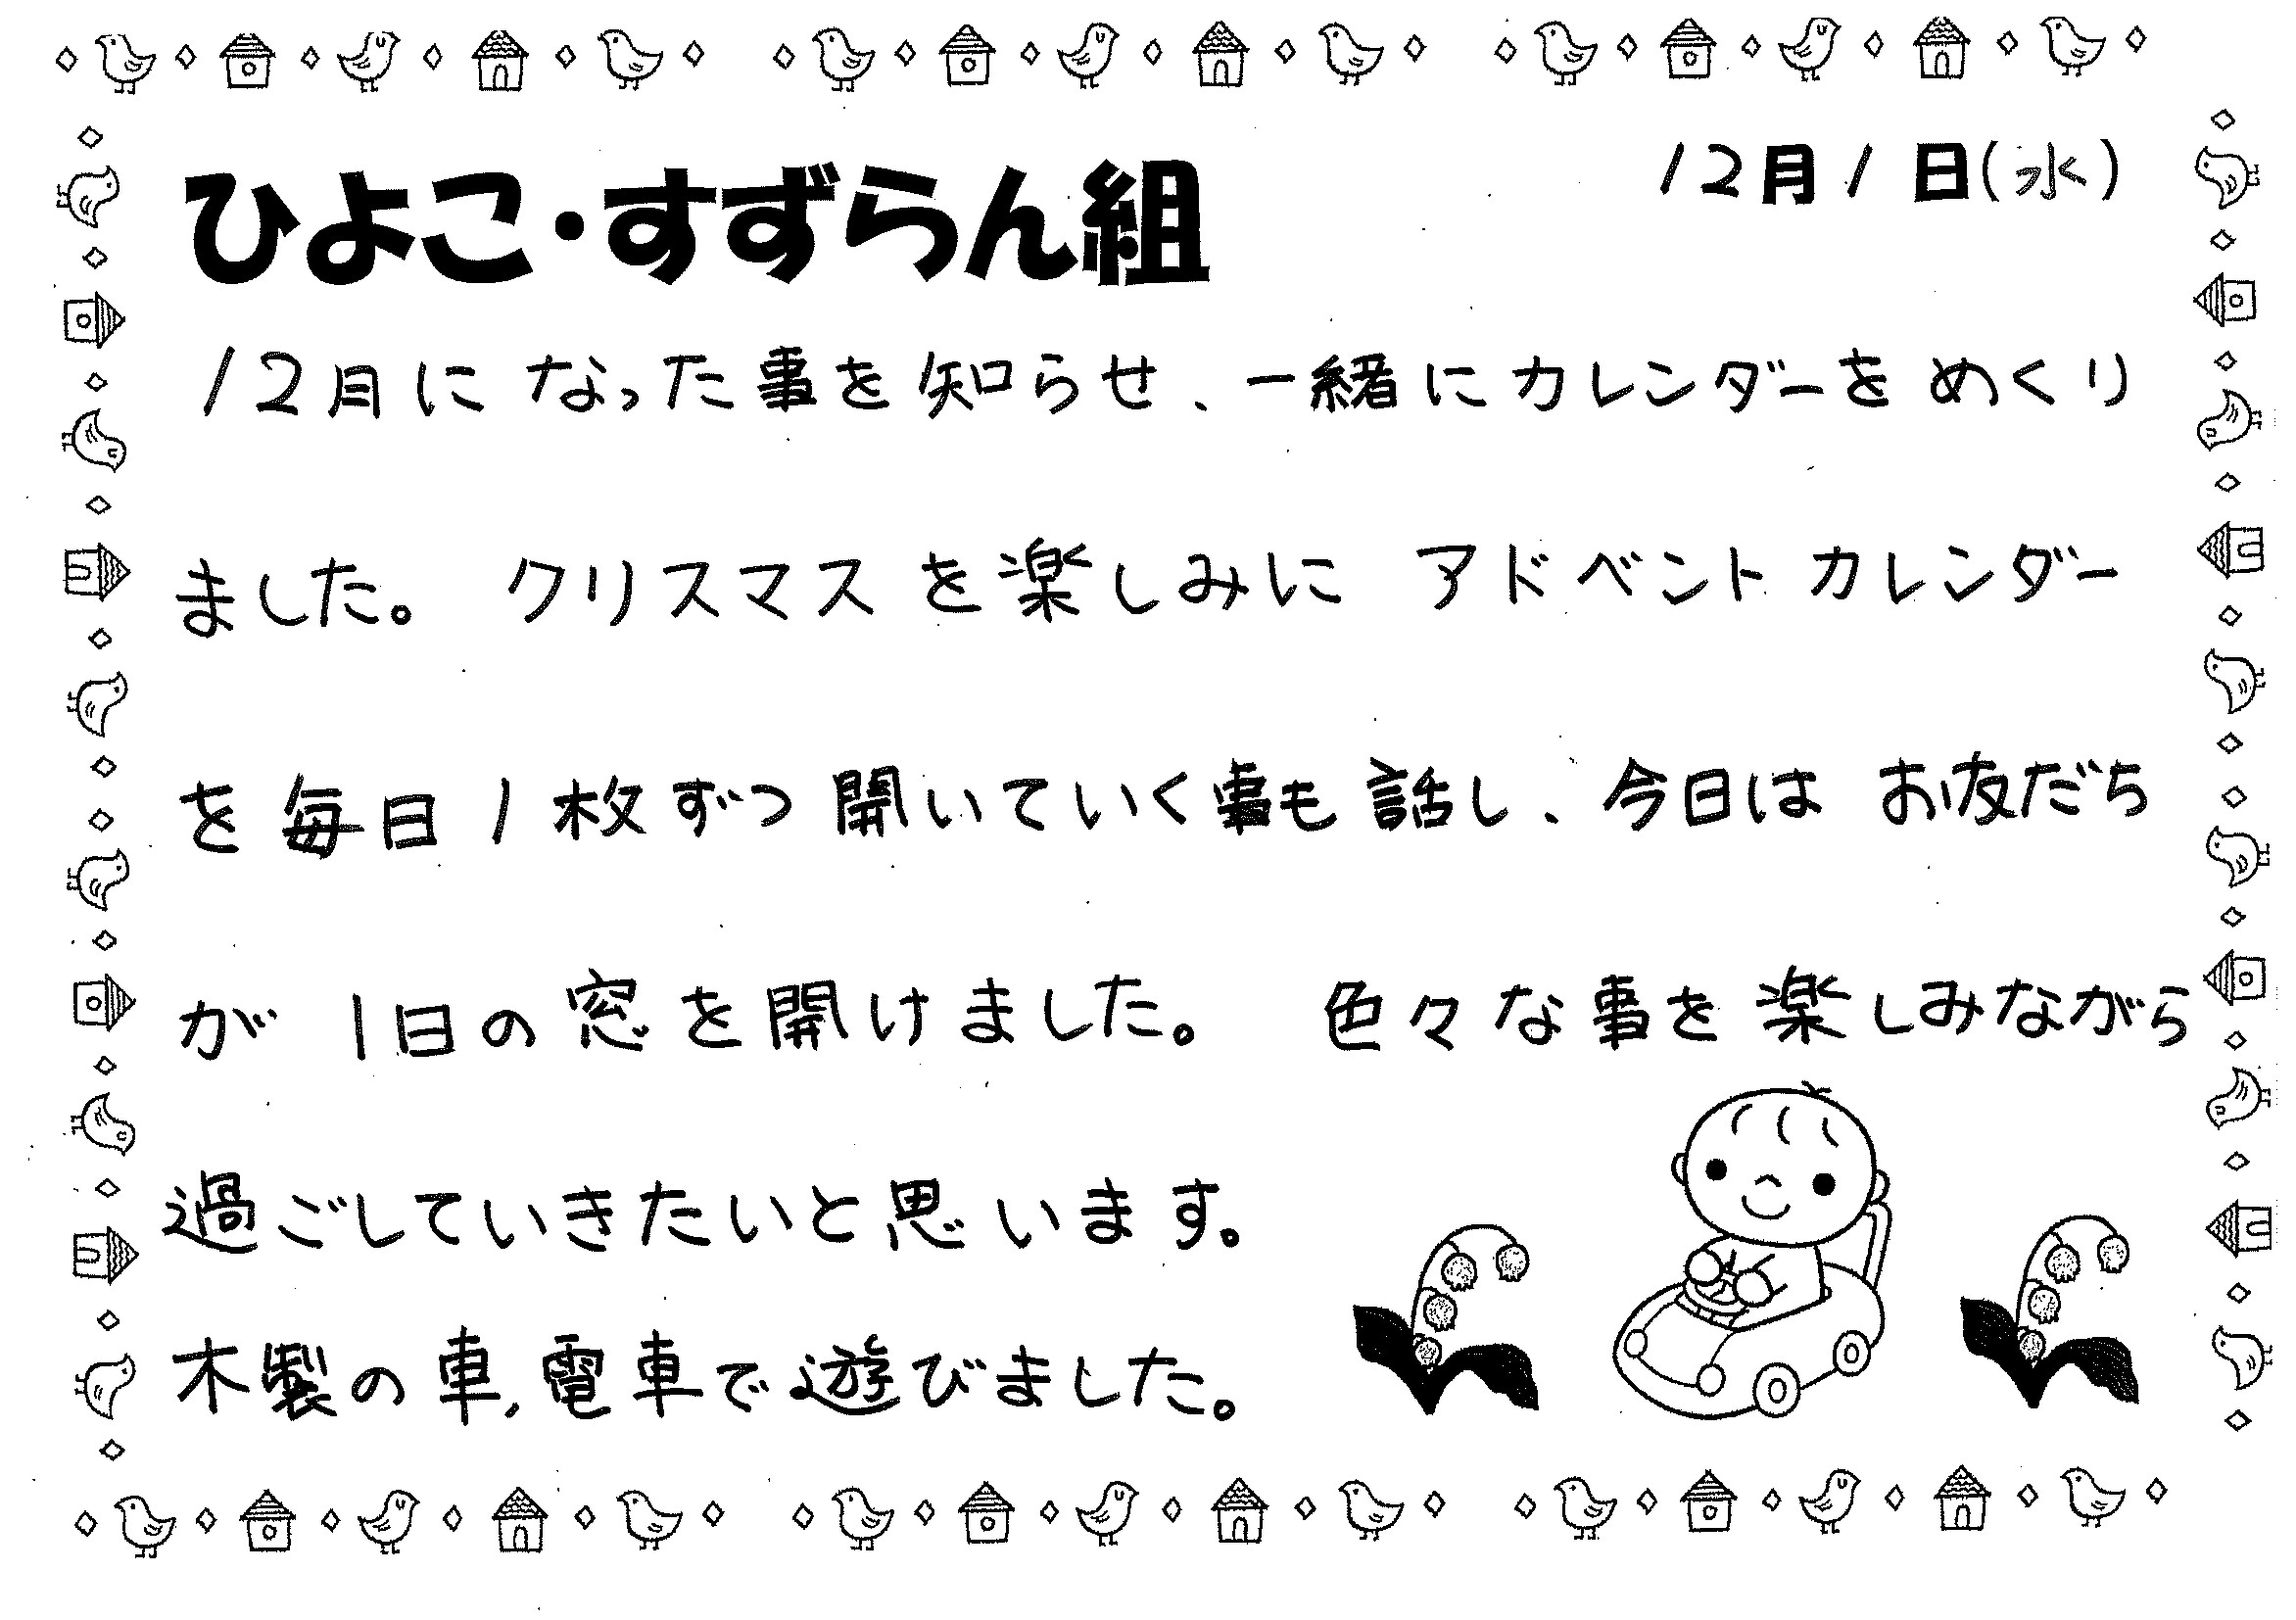 12月1日(水)
ひよこ・すずらん組
12月になった事を知らせ、一緒にカレンダーをめくり
ました。クリスマスを楽しみにアドベントカレンダー
を毎日1枚ずつ開いていく事も話し、今日はお友だち
が1日の窓を開けました。色々な事を楽しみながら
過ごしていきたいと思います。
木製の車、電車で遊びました。